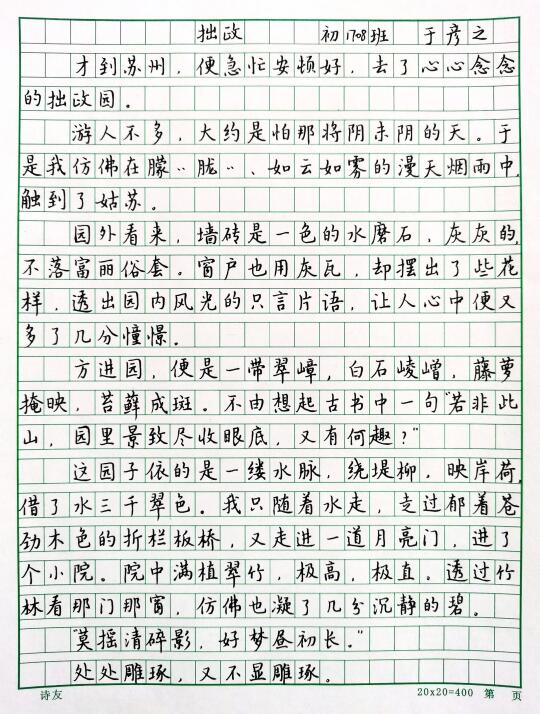 拙政 初1708班 于彦之
才到苏州，便急忙安顿好，去了心心念念
的拙政园。
游人不多，大约是怕那将阴未阴的天。于
是我仿佛在朦··胧··、如云如雾的漫天烟雨中，
触到了姑苏。
园外看来，墙砖是一色的水磨石，灰灰的，
不落富丽俗套。窗户也用灰瓦，却摆出了些花
样，透出园内风光的只言片语，让人心中便又
多了几分憧憬。
方进园，便是一带翠嶂，白石崚嶒，藤萝
掩映，苔藓成斑。不由想起古书中一句“若非此
山，园里景致尽收眼底，又有何趣？”
这园子依的是一缕水脉，绕堤柳，映岸荷，
借了水三千翠色。我只随着水走，走过郁着苍
劲木色的折栏板桥，又走进一道月亮门，进了
个小院。院中满植翠竹，极高，极直。透过竹
林看那门那窗，仿佛也凝了几分沉静的碧。
“莫摇清碎影，好梦昼初长。”
处处雕琢，又不显雕琢。
诗友 20x20=400 第 页